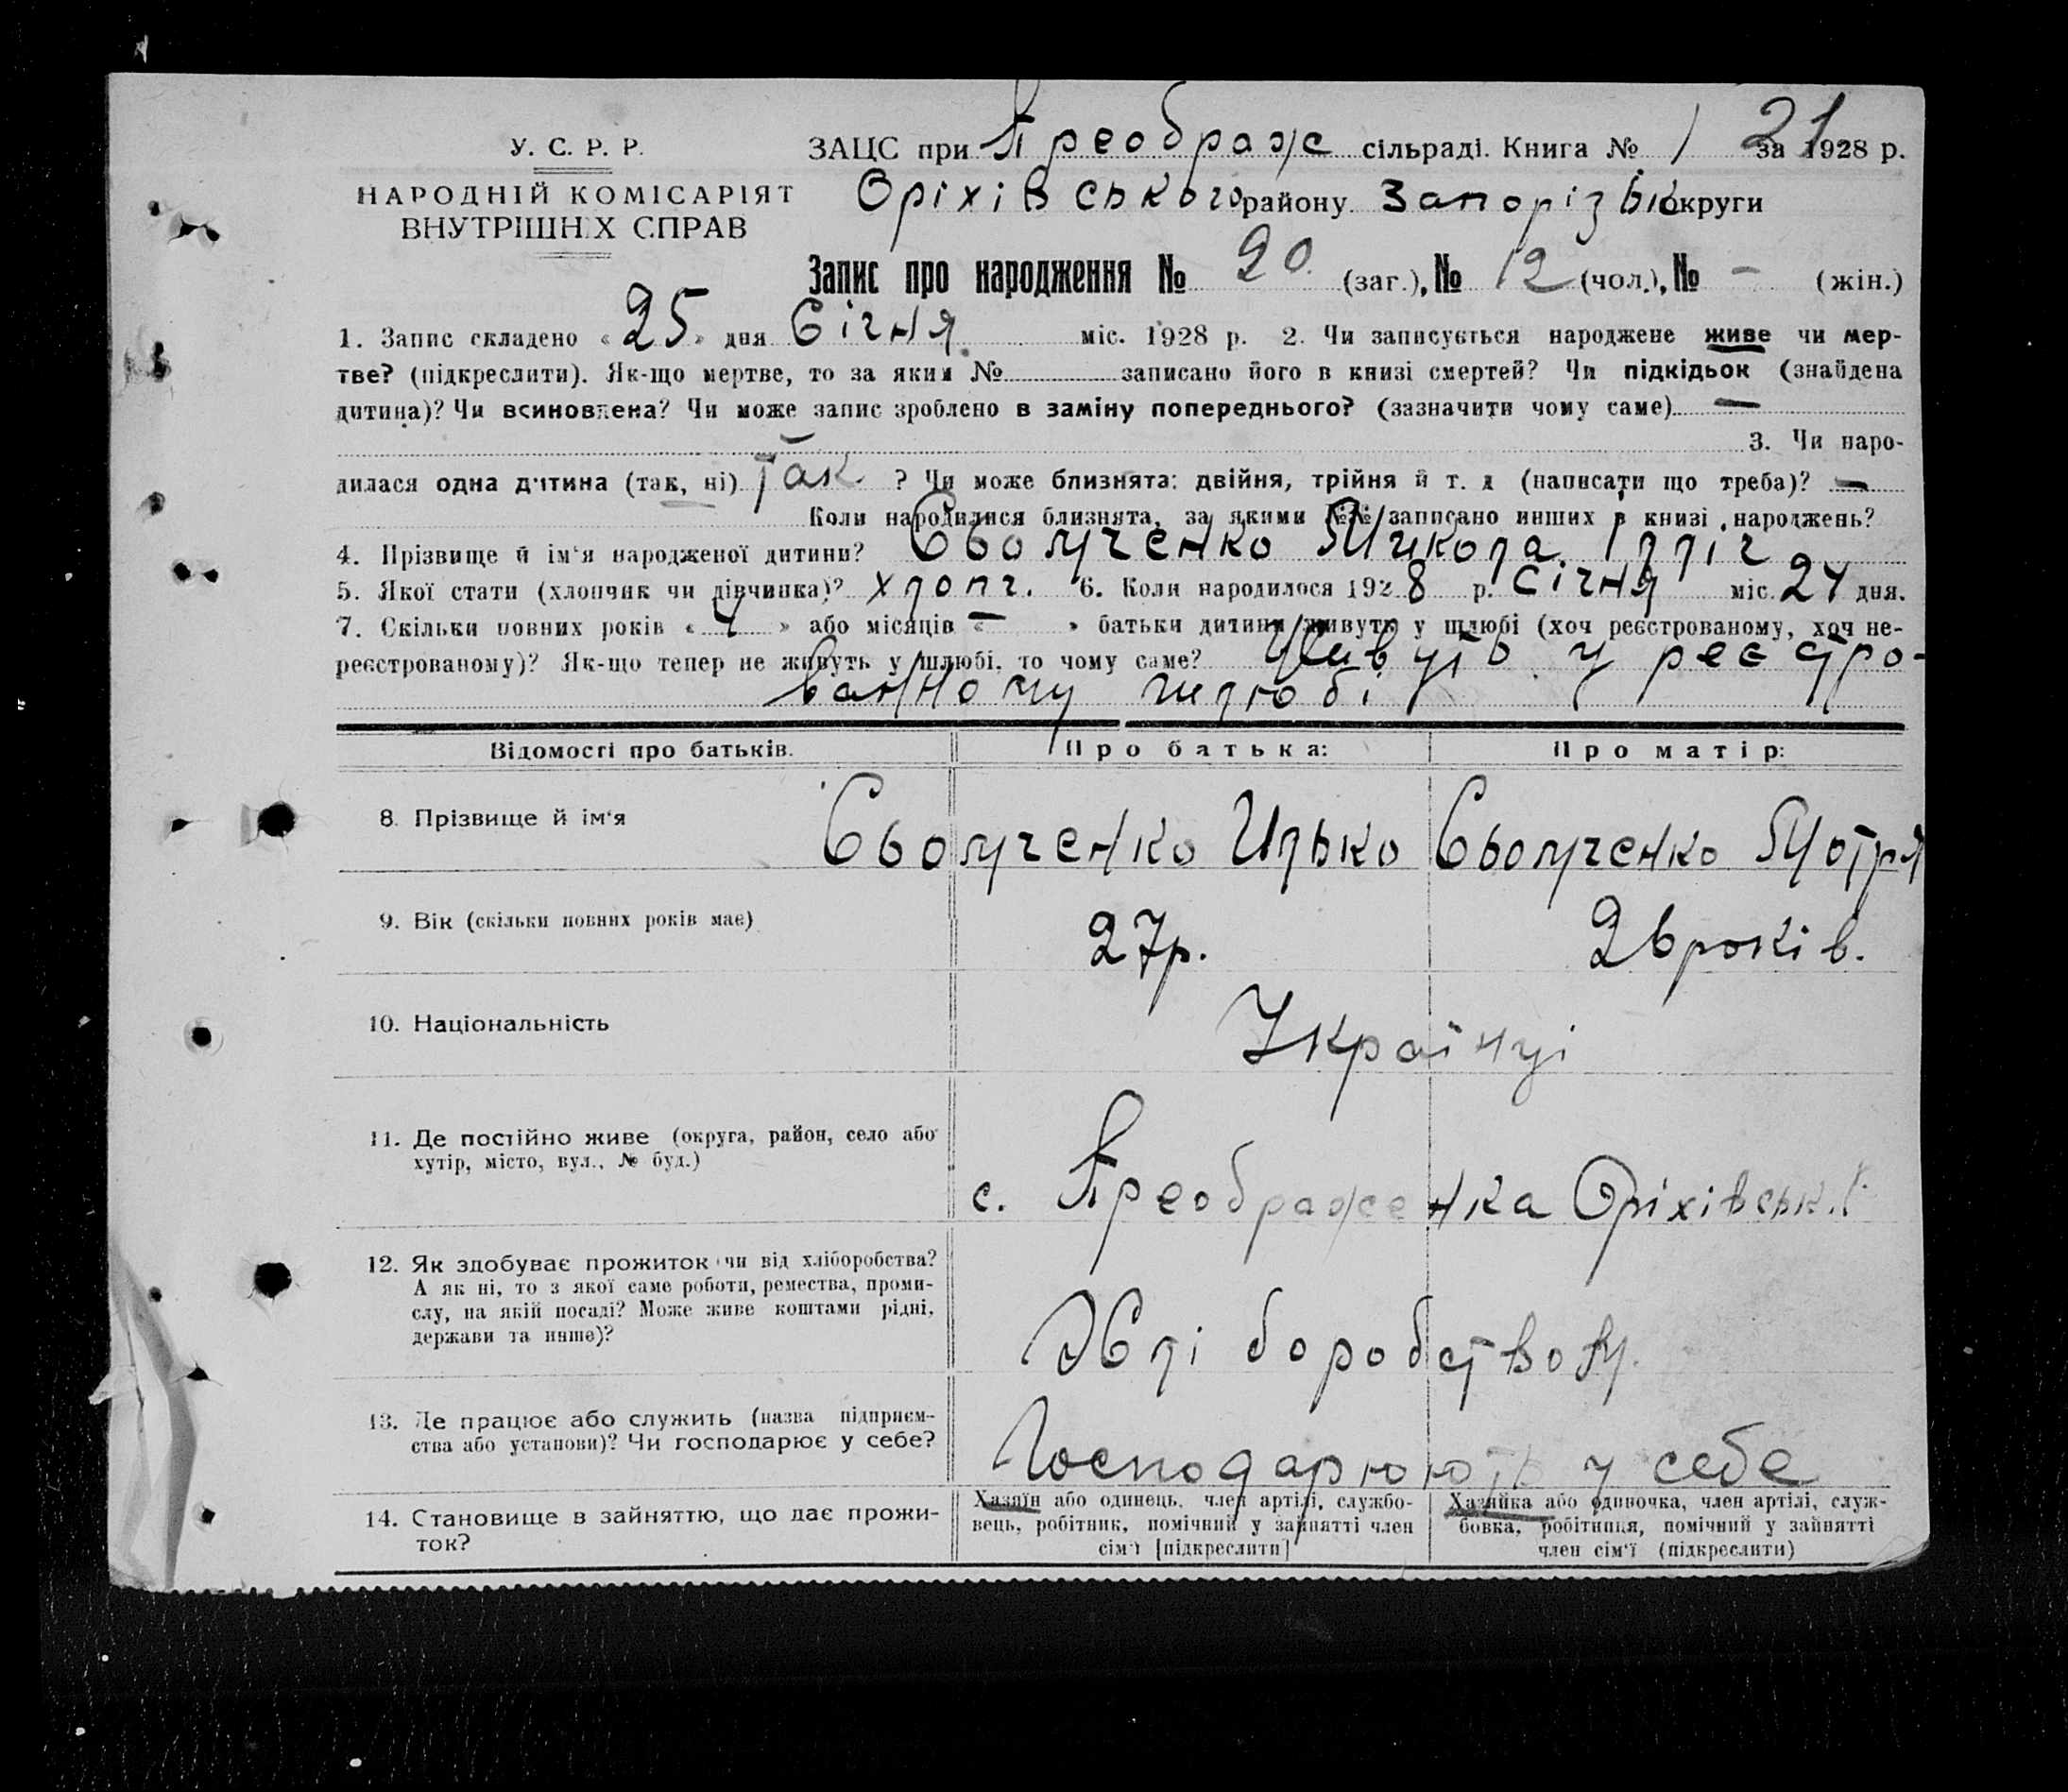 21
У. С. Р. Р.
НАРОДНІЙ КОМІСАРІЯТ
ВНУТРІШНІХ СПРАВ
ЗАЦС при Преображ сільраді. Книга № 1 за 1928 р.
Оріхівського району Запорізьк округи
Запис про народження № 20 (заг.), № 12 (чол.), № - (жін.)
1. Запис складено «25» дня Січня міс. 1928 р. 2. Чи записується народжене живе чи мер-
тве? (підкреслити). Як-що мертве, то за яким № записано його в книзі смертей? Чи підкідьок (знайдена
дитина)? Чи всиновлена? Чи може запис зроблено в заміну попереднього? (зазначити чому саме) —
3. Чи наро-
дилася одна дитина (так, ні) Так ? Чи може близнята: двійня, трійня й т. д (написати що треба)? —
Коли народилися близнята, за якими №№ записано инших в книзі народжень?
4. Прізвище й ім'я народженої дитини? Сьомченко Микола Ілліч
5. Якої стати (хлопчик чи дівчинка)? хлопч. 6. Коли народилося 1928 р. Січня міс. 24 дня.
7. Скільки повних років «4» або місяців «—» батьки дитини живуть у шлюбі (хоч реєстрованому, хоч не-
реєстрованому)? Як-що тепер не живуть у шлюбі, то чому саме? Живуть у реєстро-
ванному шлюбі
Відомості про батьків. Про батька: Про матір:
8. Прізвище й ім'я Сьомченко Илько Сьомченко Мотря
9. Вік (скільки повних років має) 27р. 26 років.
10. Національність Українці
11. Де постійно живе (округа, район, село або
хутір, місто, вул., № буд.) с. Преображенка Оріхівськ.
12. Як здобуває прожиток чи від хліборобства?
А як ні, то з якої саме роботи, ремества, проми-
слу, на якій посаді? Може живе коштами рідні,
держави та инше)? Хліборобством.
13. Де працює або служить (назва підприєм-
ства або установи)? Чи господарює у себе? Господарюють у себе
14. Становище в зайняттю, що дає прожи-
ток?
Хазяїн або одинець, член артілі, службо-
вець, робітник, помічний у зайнятті член
сім'ї [підкреслити]
Хазяйка або одиночка, член артілі, служ-
бовка, робітниця, помічний у зайнятті
член сім'ї (підкреслити)